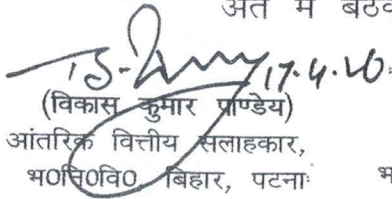 अंत में बैठक
17.4.20
(विकास कुमार पाण्डेय)
आंतरिक वित्तीय सलाहकार,
भ0नि0वि0 बिहार, पटना